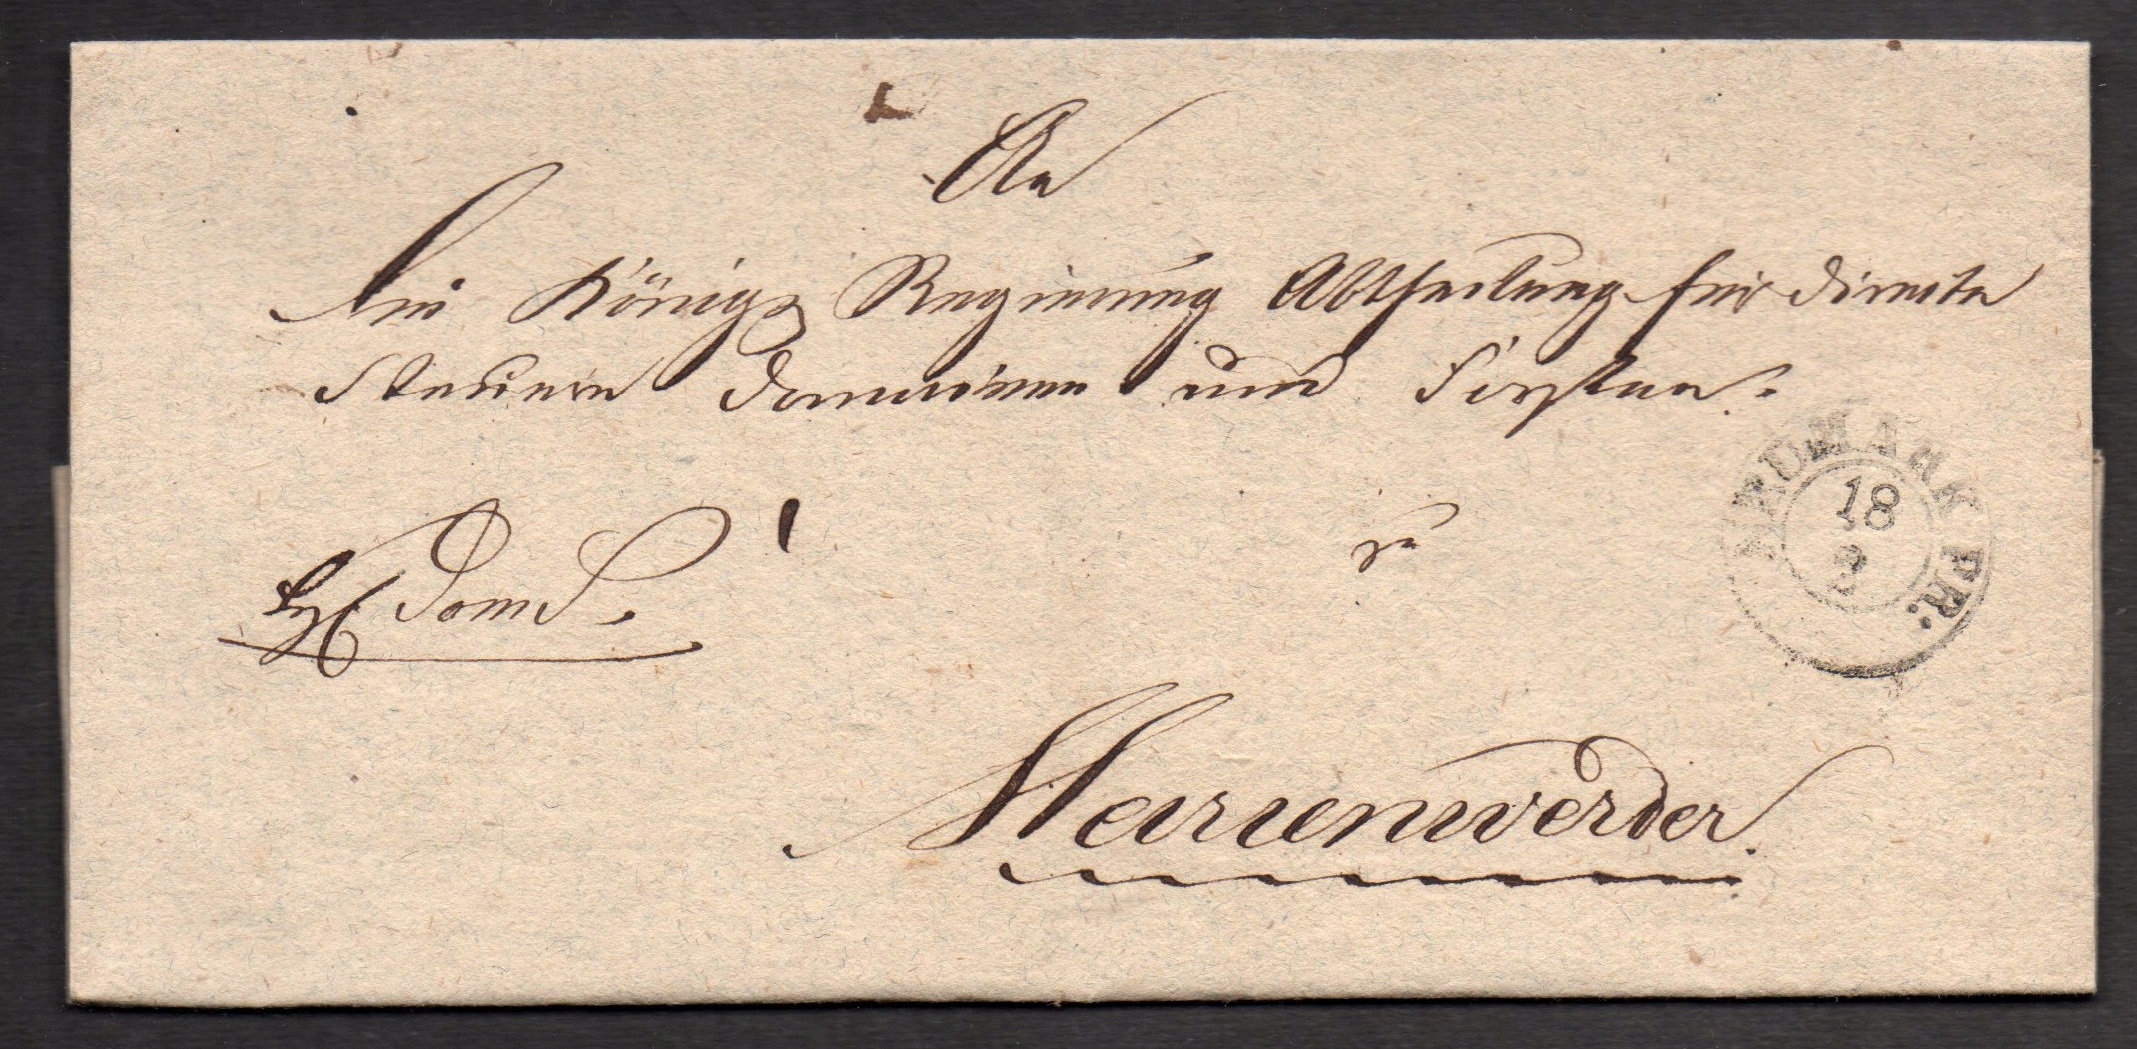 An
Die Königl Regierung Abtheilung für directe
Steuern Domainen und Forsten.
zu
Dom S.
NEUMARK PR:
18
2
Marienwerder.